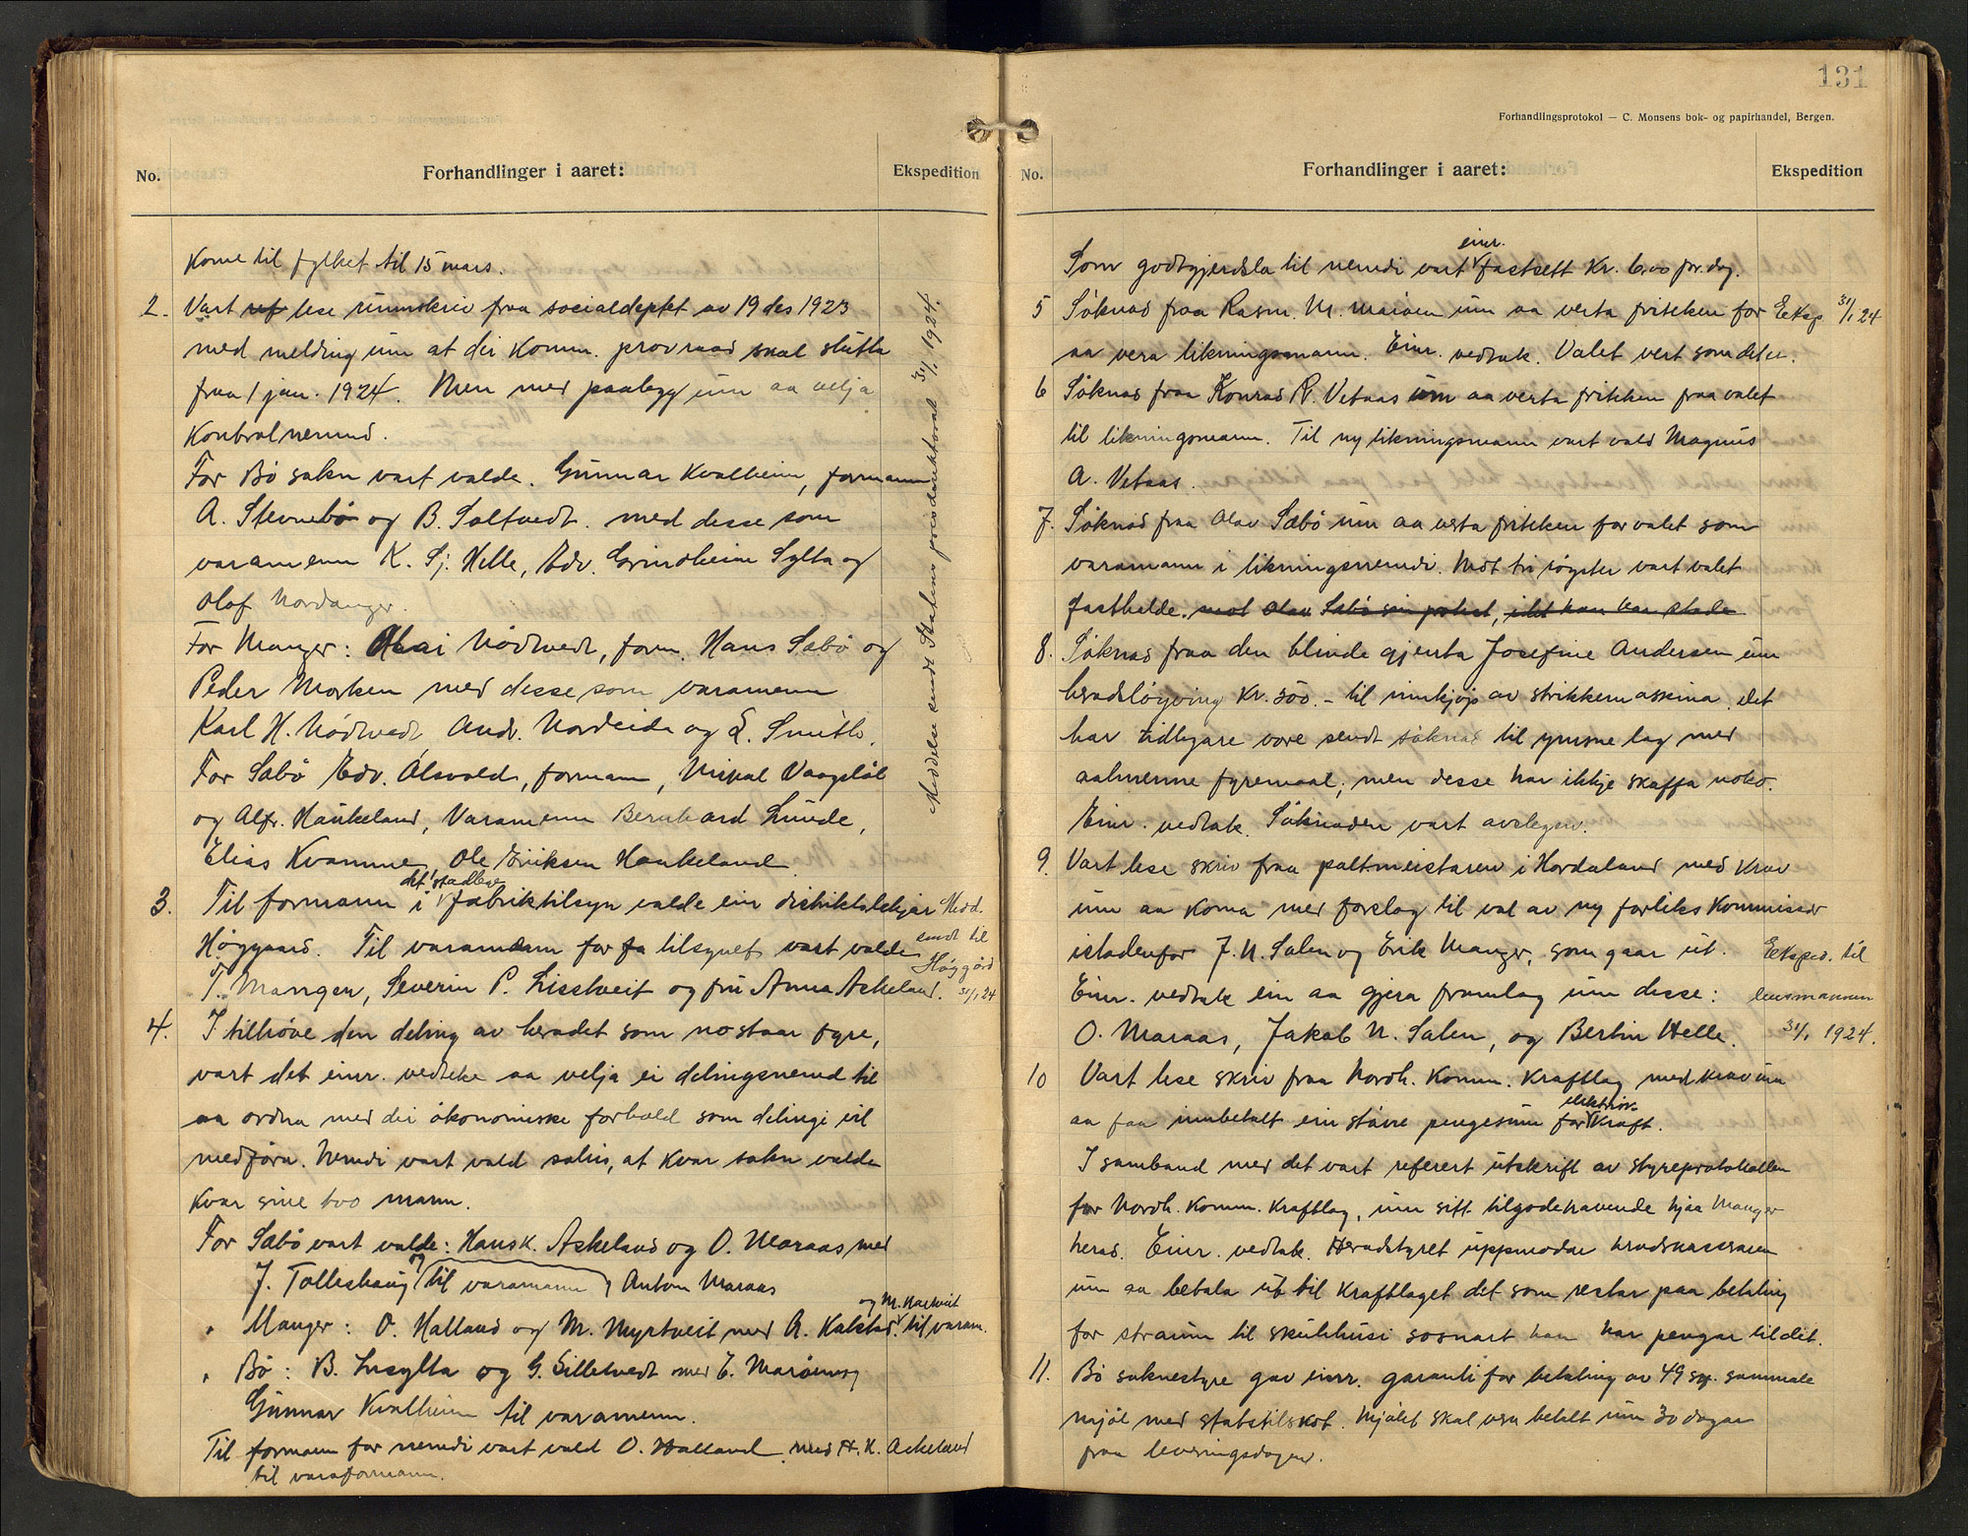 No.
Forhandlinger i aaret:
Ekspedition
Kome til fylket til 15 mars.
2. Vart ref lese rundskriv fraa socialdeptet av 19 des 1923
med melding um at dei komm. provraad skal slutta
fraa 1 jan. 1924. Men med paalegg um aa velja
Kontrolnemnd.
For Bø sokn vart valde. Gunnar Kvalheim, formann
A. Stevnebø og B. Soltvedt. med desse som
varamenn K. Sj. Helle, Edv. Grindheim Sylta og
Olof Nordanger.
For Manger: Olai Nødtvedt, form. Hans Sæbø og
Peder Morken med desse som varamenn
Karl H. Nødtvedt And. Nordeide og L. Smith.
For Sæbø Edv. Alsvold, formann, Mikal Vaagslöl
og Alfr. Haukeland, Varamenn Bernhard Lunde,
Elias Kvamme, Ole Eriksen Haukeland.
Meddelse sendt Statens provdirektorat 31/1 1924.
3. Til formann i det stadlege fabriktilsyn valde ein distriktslækjar
Høggaard. Til varamenn for fa tilsynet vart valde
T. Mangen, Severin P. Lisstveit og fru Anna Askeland.
Medd.
sendt til
Høggård
31/1 24
4. I tilhøve den deling av heradet som no staar fyre,
vart det einr. vedteke aa velja ei delingsnemnd til
aa ordna med dei økonomiske forhold som delingi vil
medføra. Nemdi vart vald soleis, at kvar sokn valde
kvar sine tvo mann.
For Sæbø vart valde: Hans K. Askeland og O. Maraas med
J. Tolleshaug og (til varamann) Anton Maraas
" Manger: O. Halland og M. Myrtveit med A. Kalstad og M. Narkveit til varam.
" Bø: B. Insylta og G. Silletvedt med E. Marøen og
Gunnar Kvalheim til varamenn.
Til formann for nemdi vart vald O. Halland med H. K. Askeland
til varaformann.
131
Forhandlingsprotokol — C. Monsens bok- og papirhandel, Bergen.
No.
Forhandlinger i aaret:
Ekspedition
Som godtgjerdsla til nemdi vart einr. fastsett Kr. 6.00 pr. dag.
5 Søknad fraa Rasm. M. Marøen um aa verta fritekken for
aa vera likningsmann. Einr. vedtak. Valet vert som det er.
Eeksp 31/1 24
6 Søknad fraa Konrad R. Vetaas um aa verta fritekken fraa valet
til likningsmann. Til ny likningsmann vart vald Magnus
A. Vetaas.
7. Søknad fraa Olav Sæbø um aa verta fritekken for valet som
varamann i likningsnemdi. Mot tri røyster vart valet
fasthelde. mot Olav Sæbø sin protest, idet han
8. Søknad fraa den blinde gjenta Josefine Andersen um
heradsløyving kr. 300.- til innkjøp av strikkemaskina. Det
har tidlegare vore sendt søknad til ymsne lag med
aalmenne fyremaal; men desse har ikkje skaffa noko.
Einr. vedtak. Søknaden vart avslegen.
9. Vart lese skriv fraa paltmeistaren i Hordaland med krav
um aa koma med forslag til val av ny forliks kommissær
istadenfor J. N. Salen og Erik Manger, som gaar ut.
Einr. vedtak ein aa gjera framlag um desse:
O. Maraas, Jakob N. Salen, og Bertin Helle.
Eeksped. til
lensmannen
31/1 1924.
10 Vart lese skriv fraa Nordh. Komm. Kraftlag med krav um
aa faa innbetalt ein større pengesum for elektrisk Kraft.
I samband med det vart referert utskrift av styreprotokollen
for Nordh. Komm. Kraftlag, um sitt tilgodehavende hjaa Manger
herad. Einr. vedtak. Heradstyret uppmodar heradskasseraren
um aa betala ut til Kraftlaget det som restar paa betaling
for straum til skulehusi sosnart han har pengar til det.
11. Bø soknestyre gav einr. garanti for betaling av 49 sekk sammale
mjøl med statstilskot. Mjølet skal vera betalt um 30 dagar
fraa leveringsdagen.